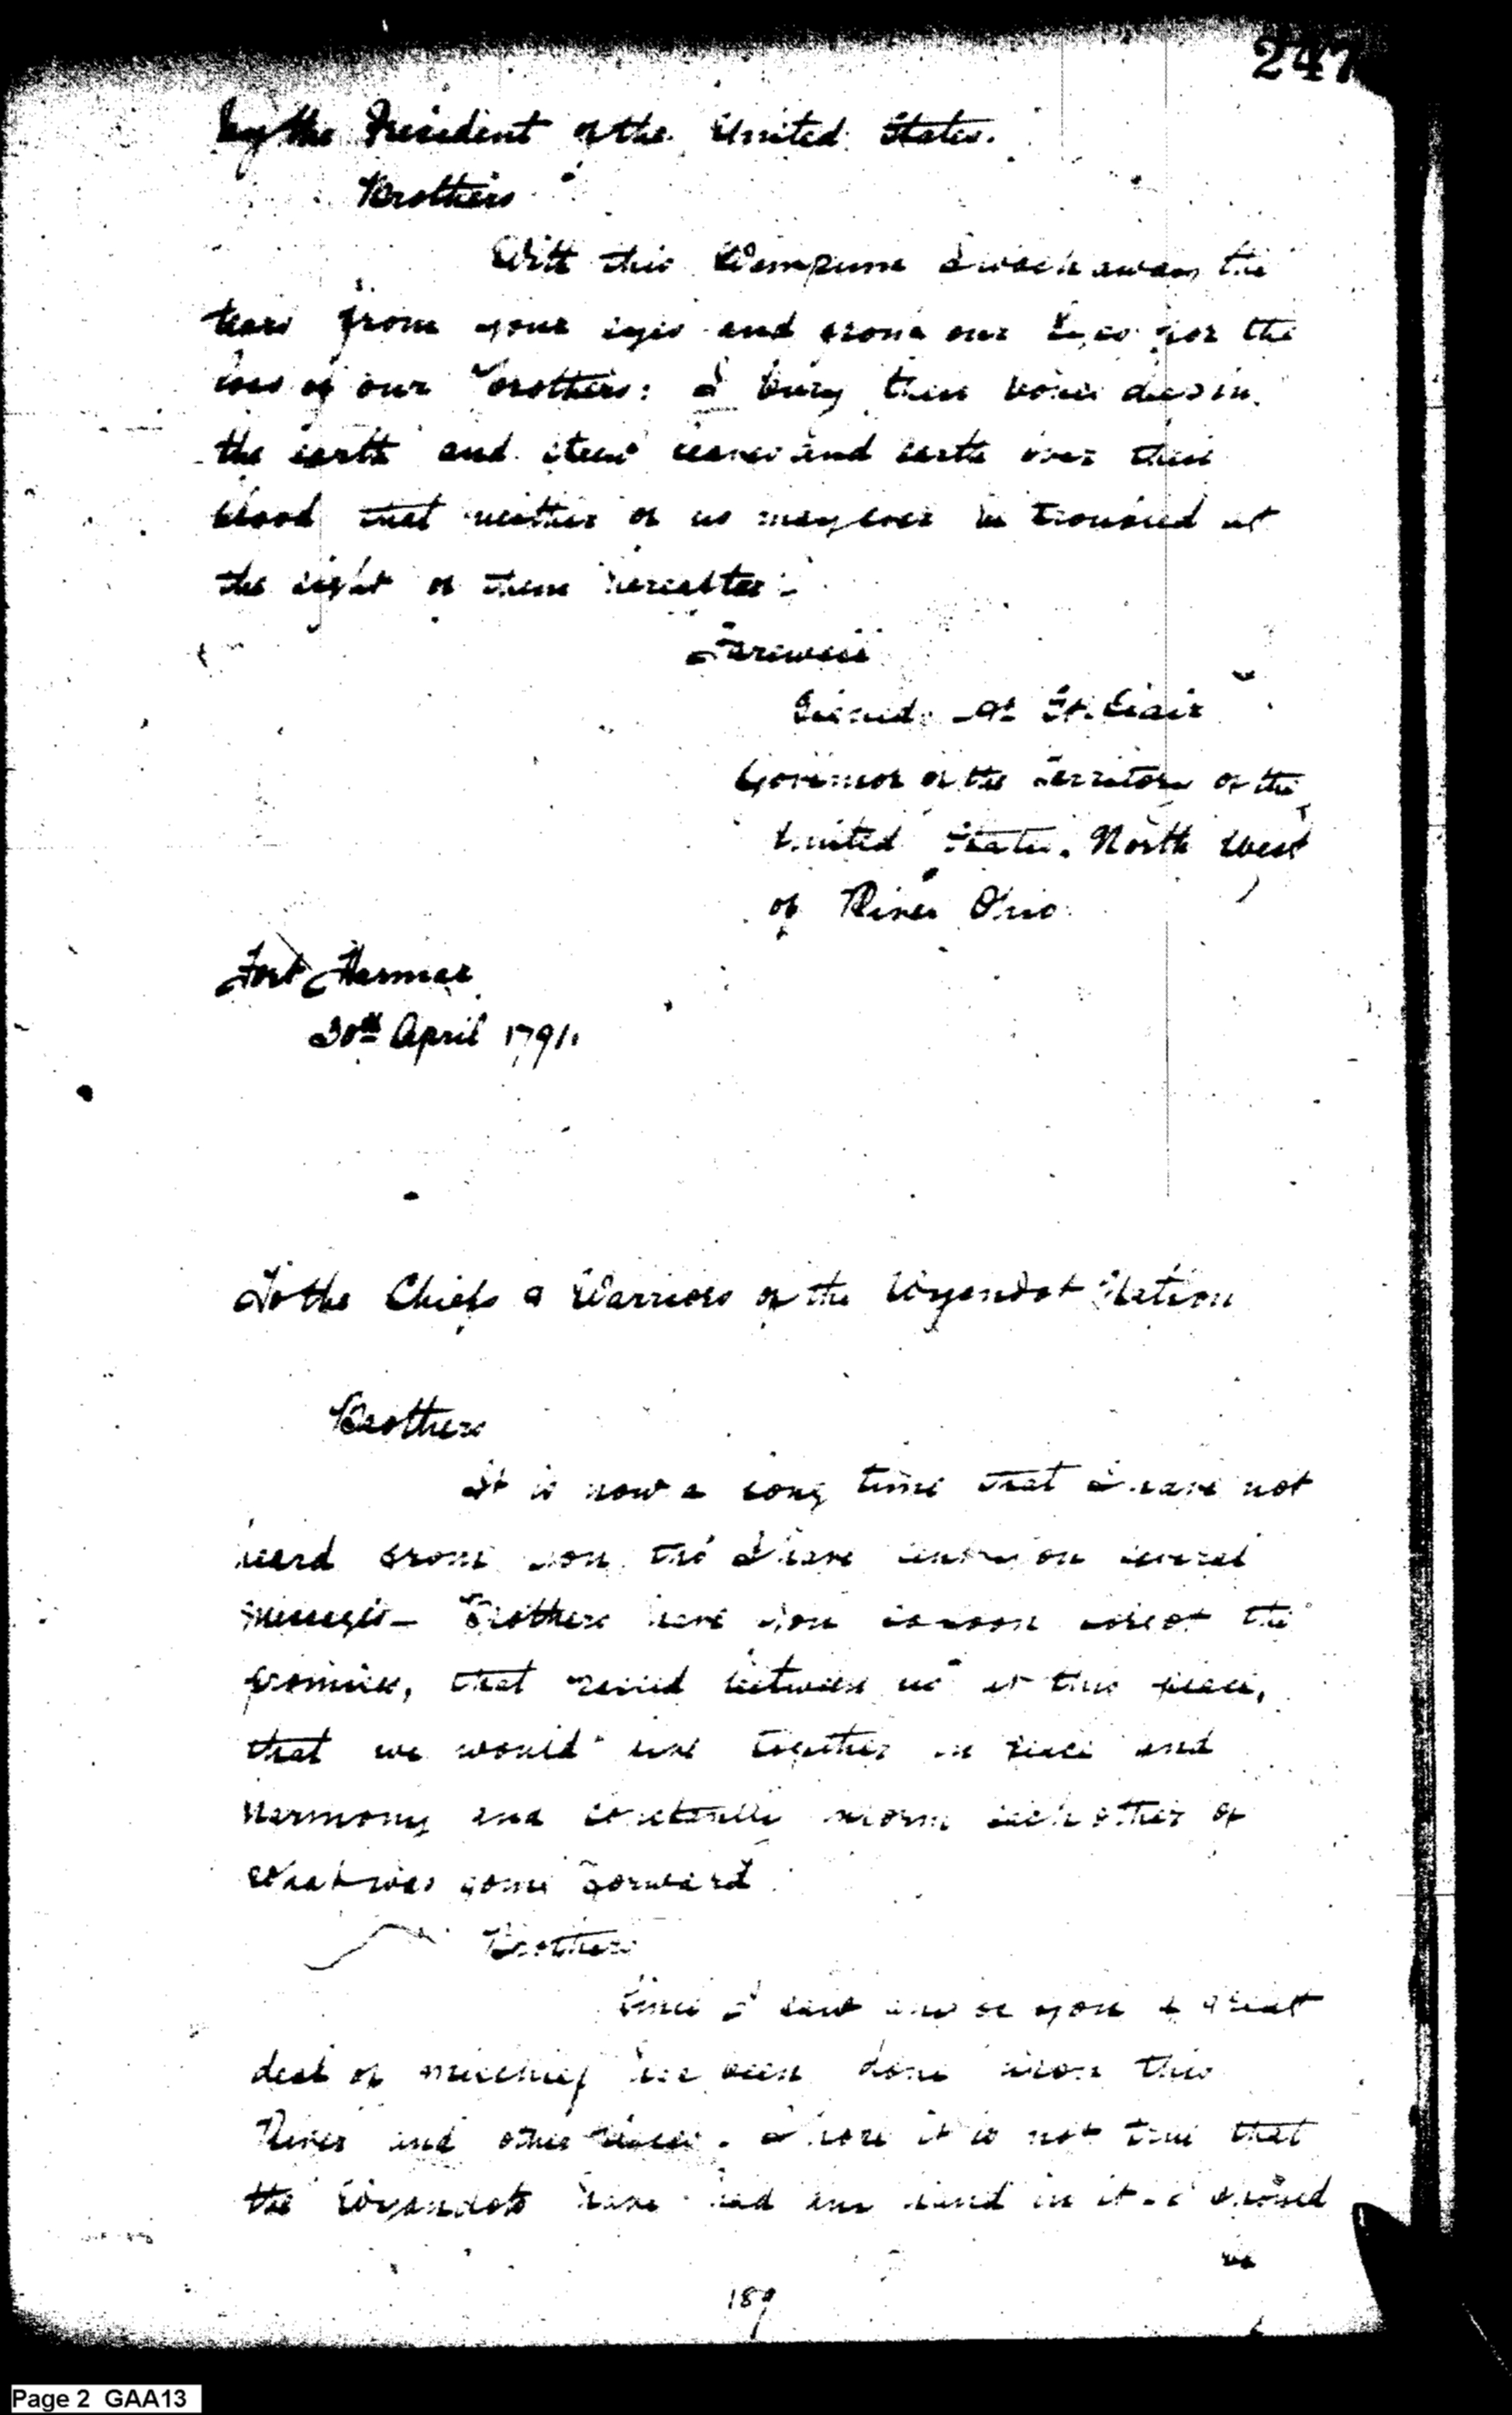 247
by the President of the United States.
Brothers
With this Wampum I wash away the
tears from your eyes and from our Eyes for the
loss of our Brothers: I bury their bones deep in
the earth and strew leaves and earth over their
blood that neither of us may ever be troubled at
the sight of them hereafter.
Farewell
Signed Ar St. Clair
Governor of the Territory of the
United States. North West
of River Ohio
Fort Harmar
30th April 1791.
To the Chiefs & Warriors of the Wyandot Nation
Brothers
It is now a long time that I have not
heard from you tho' I have sent you several
messages— Brothers have you so soon forgot the
promises, that passed between us at this place,
that we would live together in peace and
Harmony and constantly inform each other of
what was going forward
Brothers
Since I saw any of you a great
deal of mischief has been done upon this
River and other places. I hope it is not true that
the Wyandots have had any hand in it. I should
be
189
Page 2 GAA13